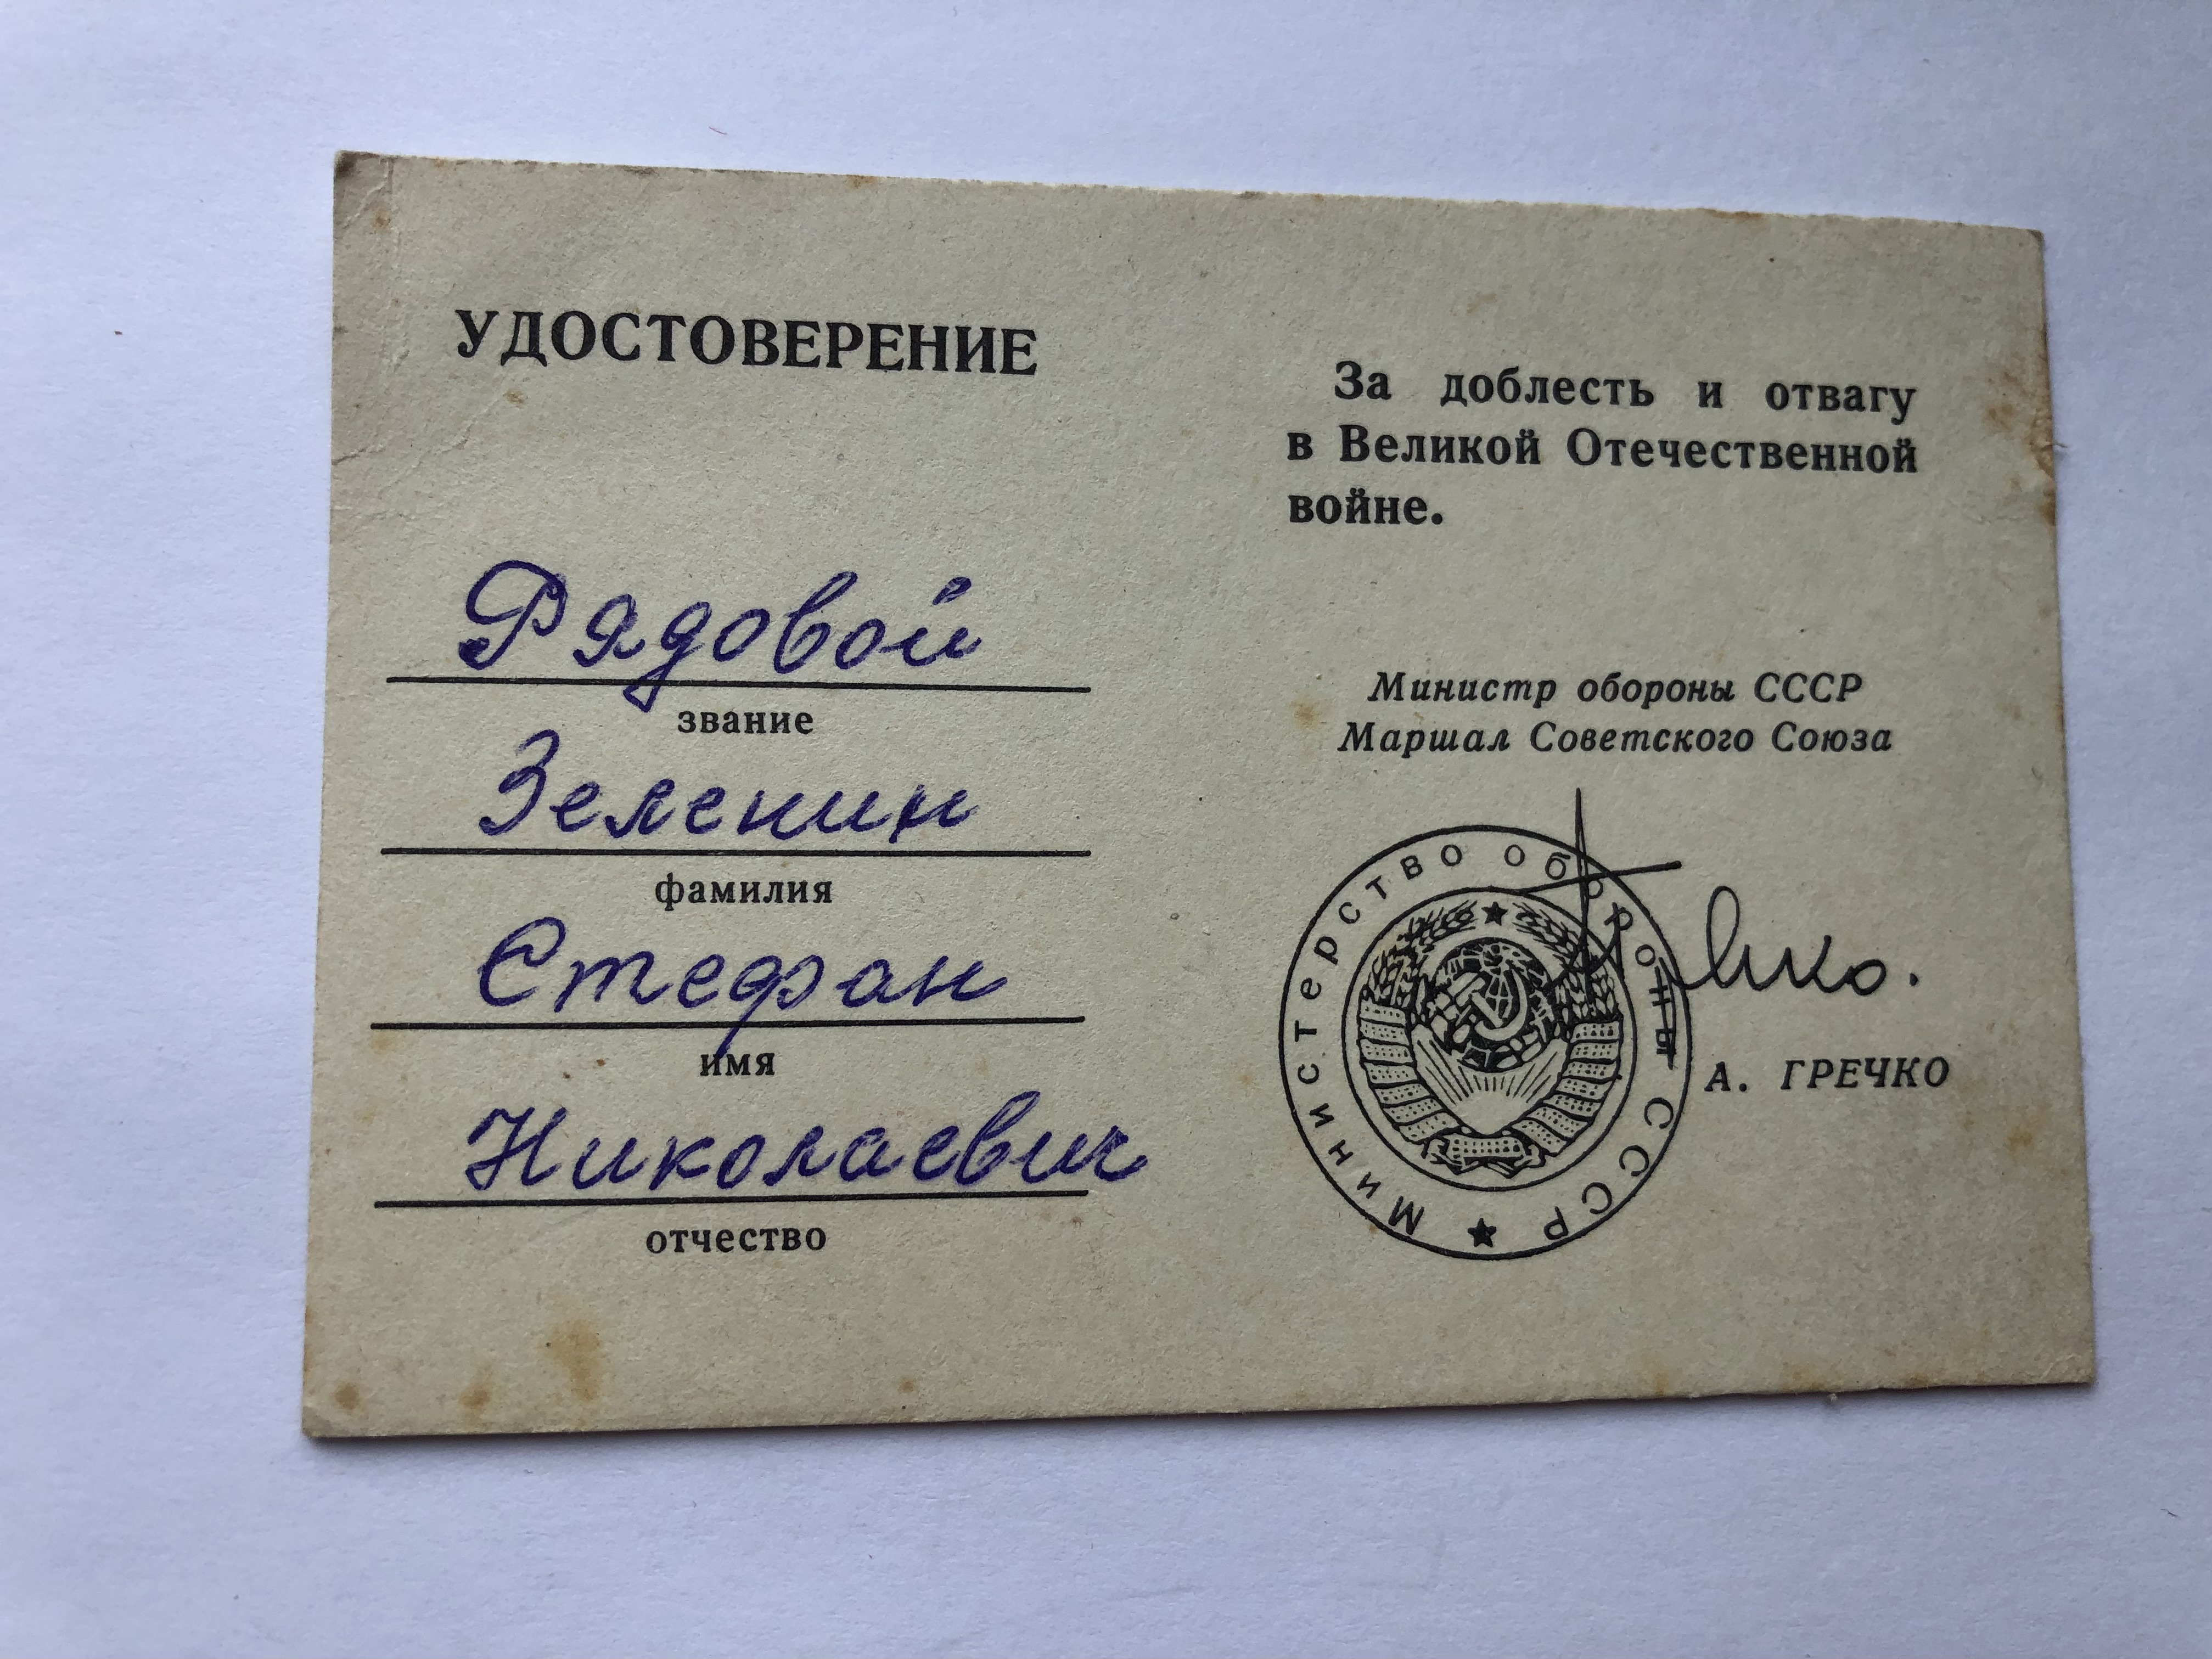 УДОСТОВЕРЕНИЕ
Рядовой
звание
Зеленин
фамилия
Стефан
имя
Николаевич
отчество
За доблесть и отвагу
в Великой Отечественной
войне.
Министр обороны СССР
Маршал Советского Союза
Министерство обороны СССР
А. ГРЕЧКО